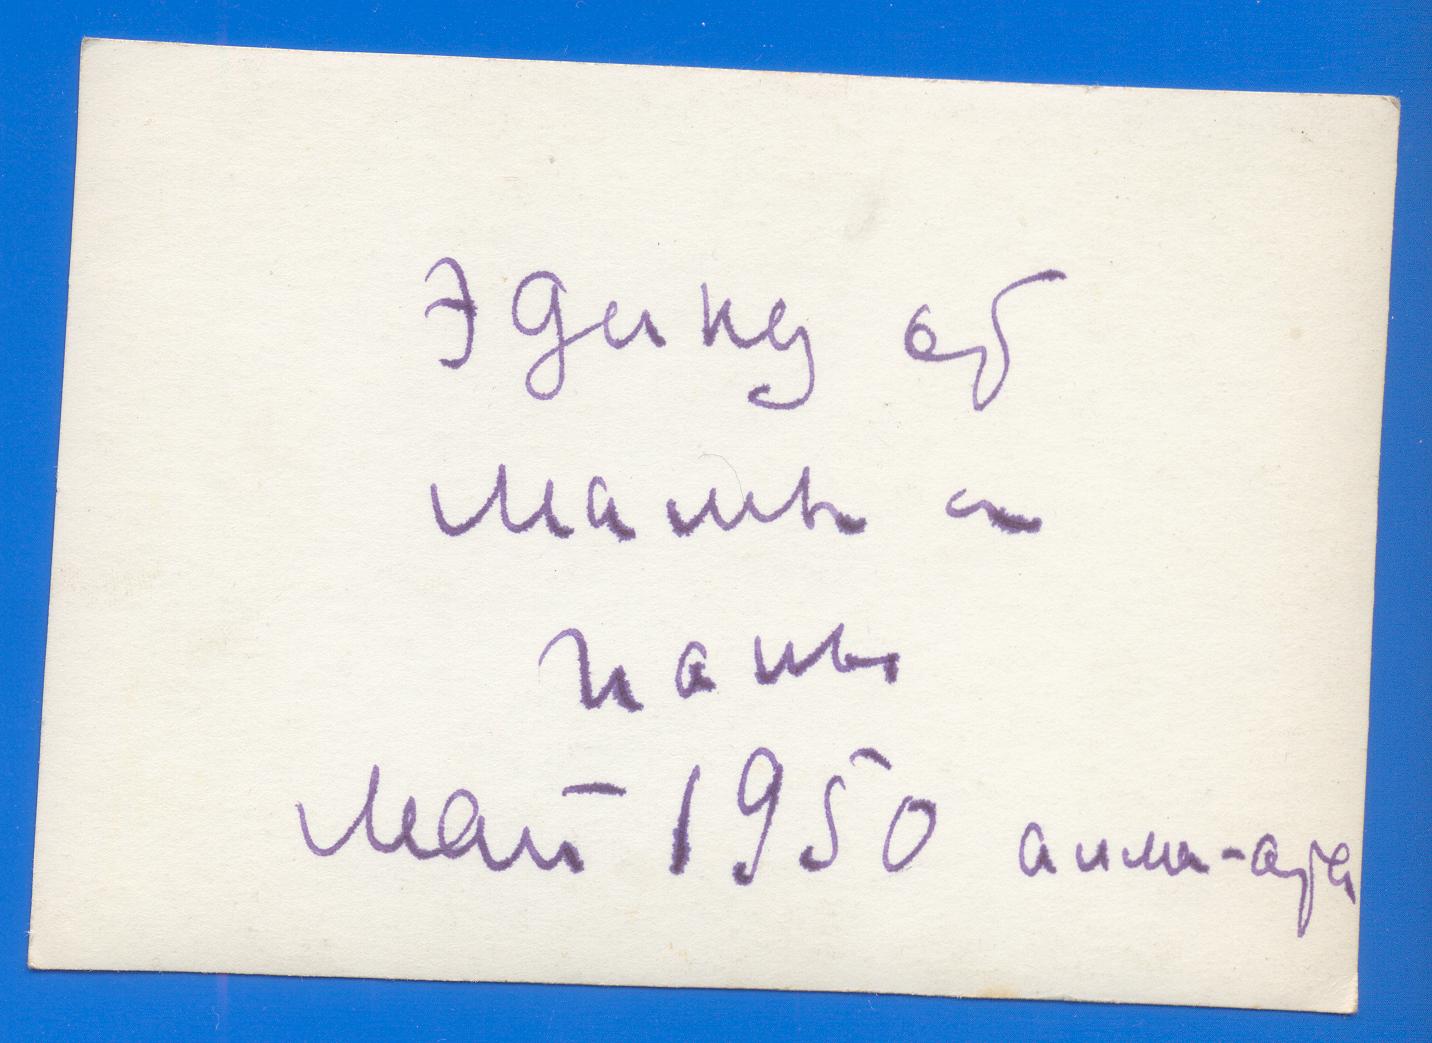 Эдику от
мамы и
папы
Май 1950 алма-ата